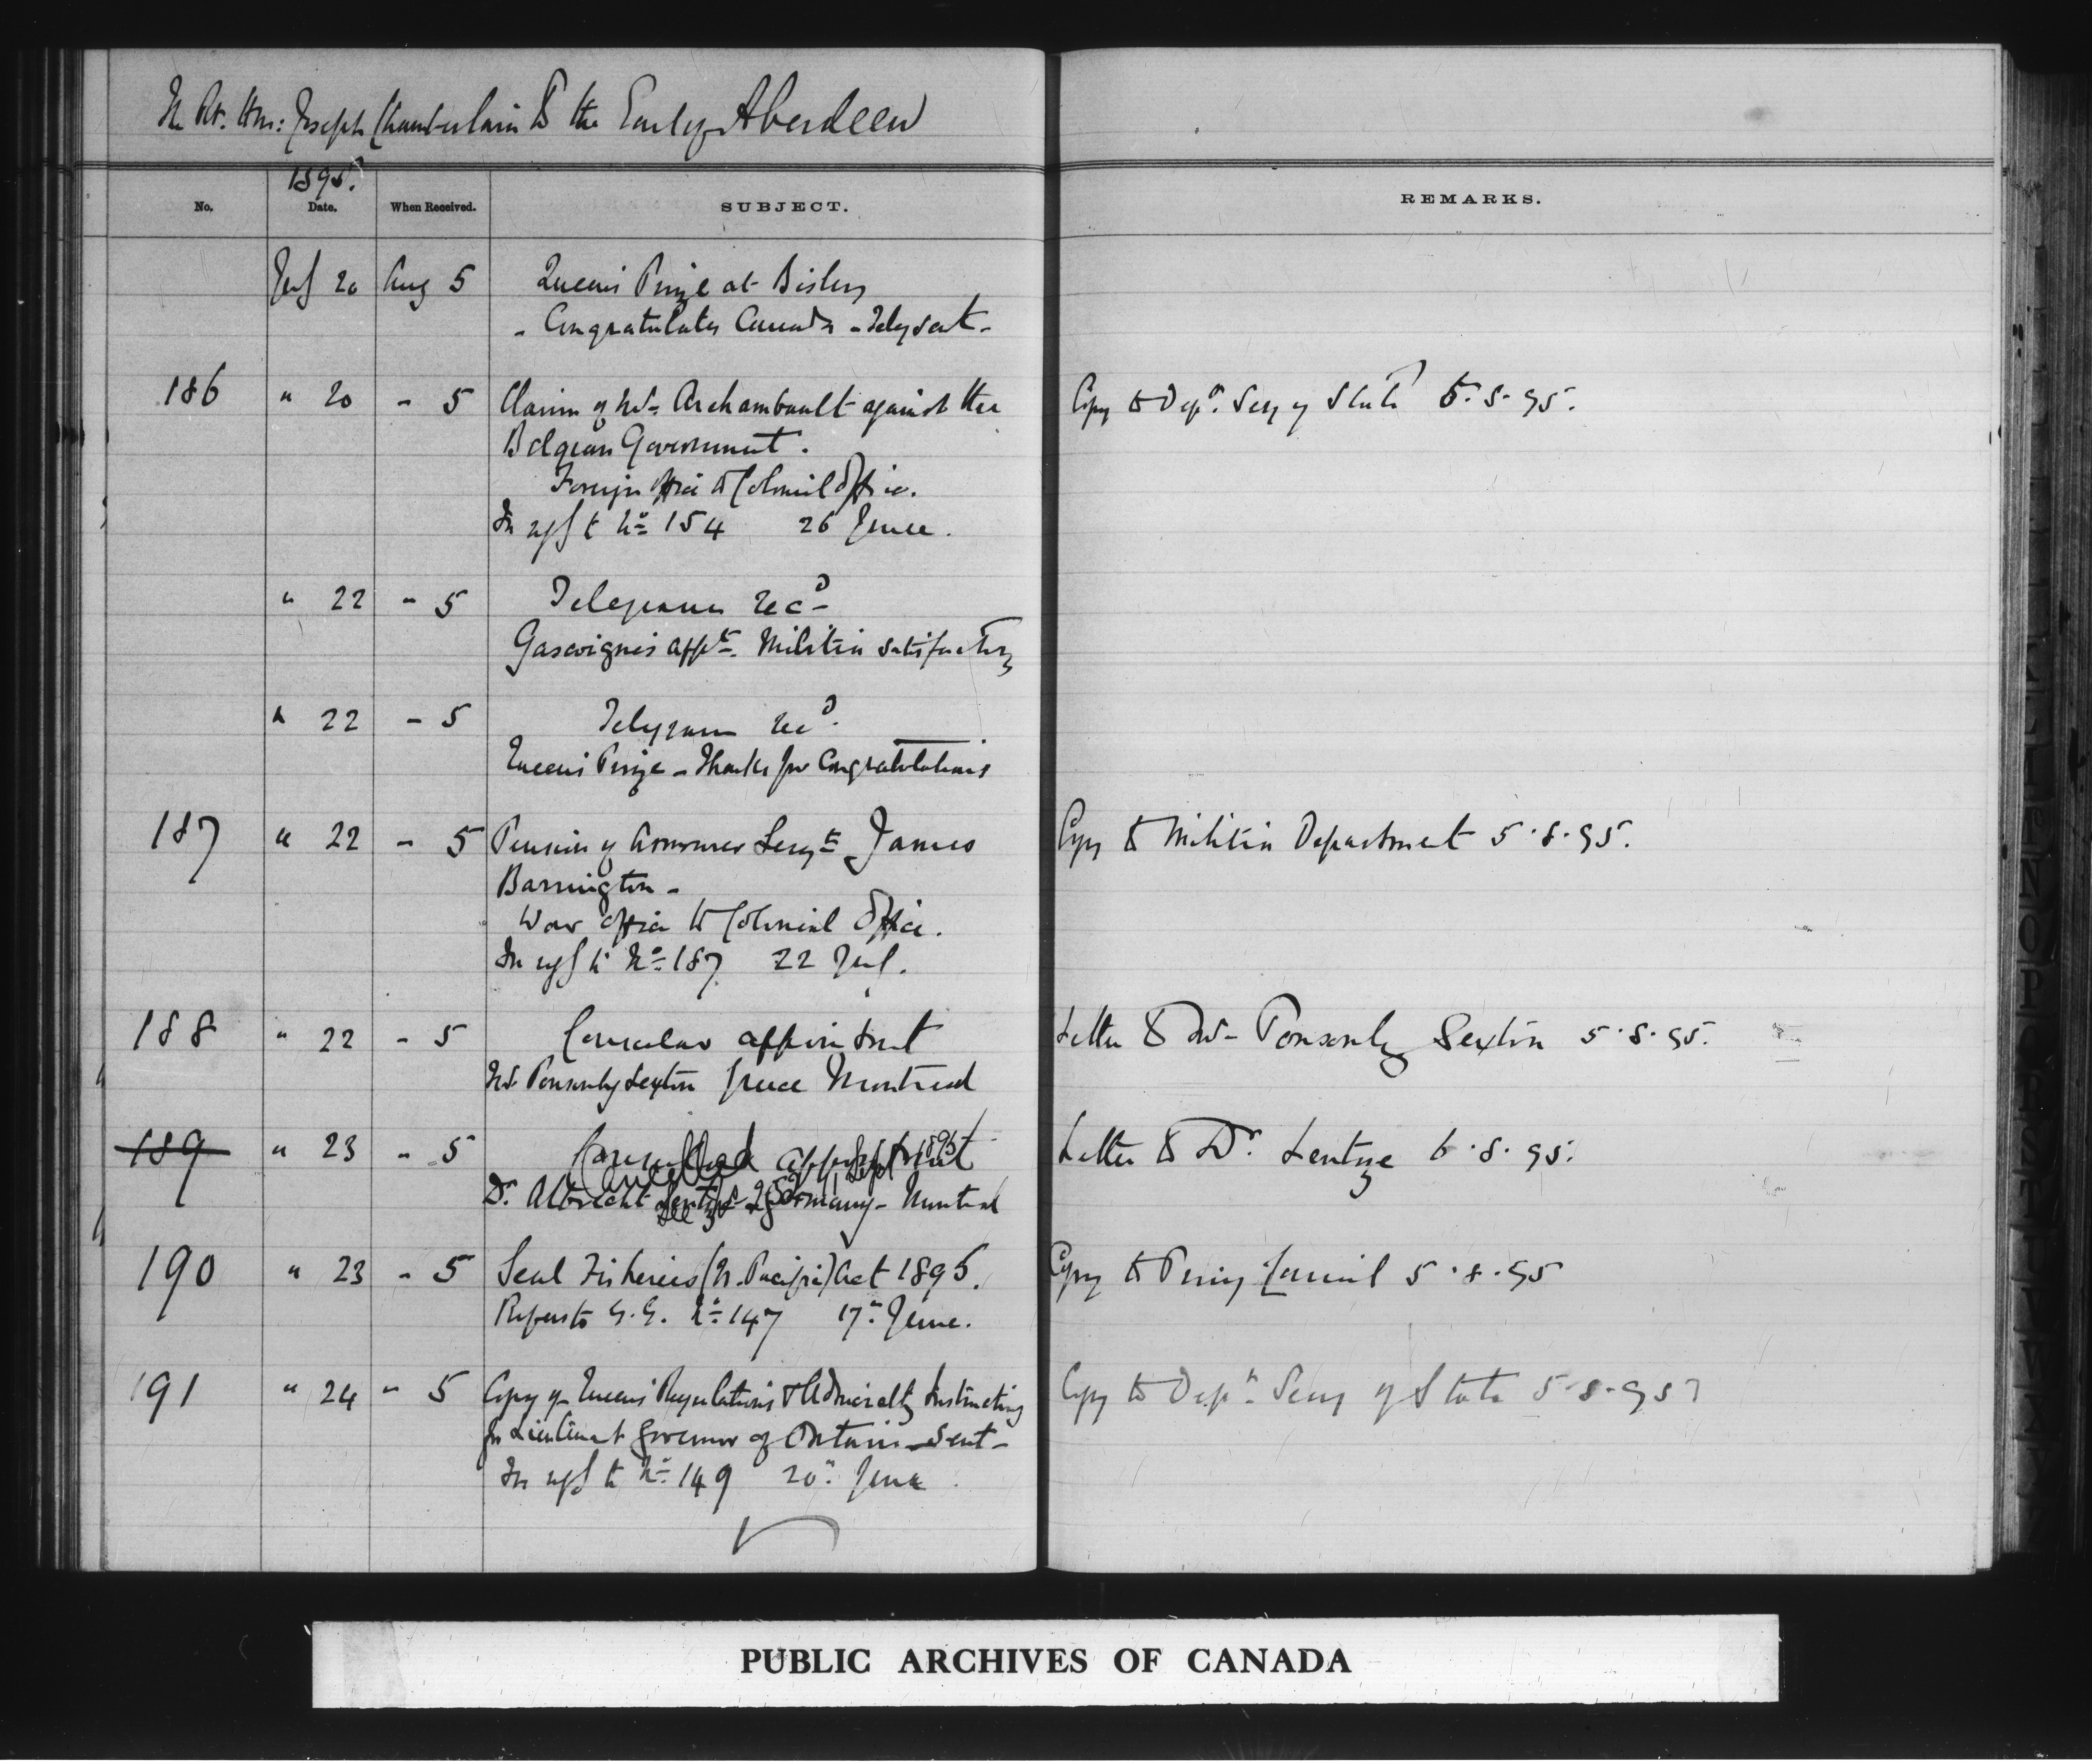 The Rt. Hon: Joseph Chamberlain to the Earl of Aberdeen
1895.
No. Date. When Received. SUBJECT. REMARKS.
July 20 Aug 5 Queen's Prize at Bisley
- Congratulates Canada - Teleg sent -
186 " 20 - 5 Claim of Mr Archambault against the Copy to Depy. Secy of State 5.8.95.
Belgian Government.
Foreign Office to Colonial Office.
In reply to No 154 26 June.
" 22 - 5 Telegram recd
Gascoigne's appt. Militia satisfactory
" 22 - 5 Telegram recd.
Queen's Prize - Thanks for Congratulations
187 " 22 - 5 Pension of Armourer Sergt James Copy to Militia Department 5.8.95.
Barrington -
War Office to Colonial Office.
In reply to No 187 22 Jul.
188 " 22 - 5 Consular appointment Letter to Mr Ponsonby Sexton 5.8.95.
Mr Ponsonby Sexton Montreal
189 " 23 - 5 Consular appointment Letter to Dr. Lentze 6.8.95.
Cancelled
Dr. Albrecht Lentze - Germany - Montreal
190 " 23 - 5 Seal Fisheries (N. Pacific) Act 1895. Copy to Privy Council 5.8.95
Refers to G.G. No 147 17th June.
191 " 24 " 5 Copy of Queen's Regulations & Admiralty Instructions Copy to Depy. Secy of State 5-8-95
for Lieutenant Governor of Ontario - Sent -
In reply to No. 149 20th June
PUBLIC ARCHIVES OF CANADA